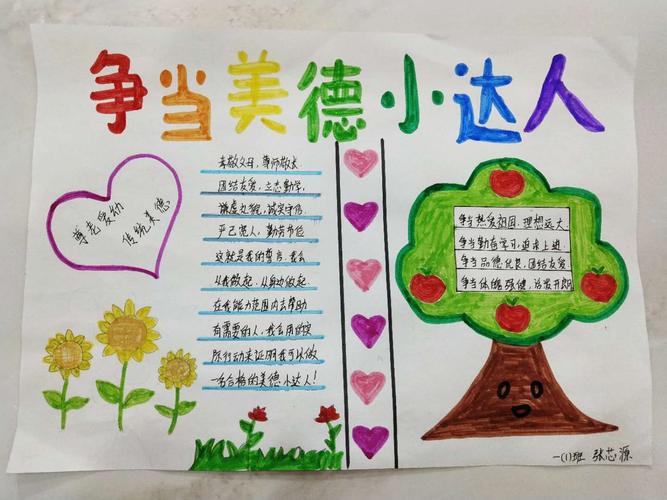 争当美德小达人
尊老爱幼
传统美德
孝敬父母，尊师敬长
团结友爱，立志勤学，
谦虚礼貌，诚实守信
严己宽人，勤劳节俭
这就是我的誓言，我会
从我做起，从身边做起
在我能力范围内去帮助
有需要的人，我会用的实
际行动来证明我可以做
一名合格的美德小达人！
争当热爱祖国，理想远大
争当勤奋学习，追求上进
争当品德优良，团结友爱
争当体魄强健，活泼开朗
一(1)班 张芯源